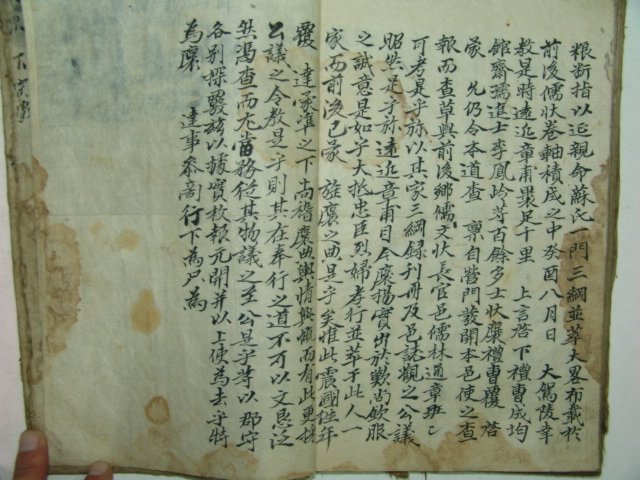 粮斷指以延親命蘇氏一門三綱並萃大畧布載於
前後儒狀卷軸積成之中癸酉八月日 大駕陵幸
敎是時遠近章甫裹足千里 上言啓下禮曹成均
館齋儒進士李鳳 等百餘多士狀禀禮曹覆 啓
蒙 允仍令本道查 禀自營門發關本邑使之查
報而查草與前後鄉儒文狀長官邑儒林通章班班
可考是乎旀以其家三綱錄刊冊及邑誌觀之公議
昭然是乎旀遠近章甫目今禀揚實出於歎尙欽服
之誠意是如乎大抵忠臣烈婦孝行並萃于此人一
家而前後已蒙 旌褒之典是乎矣惟此震國 年
覆 達蒙準之下尚稽褒典輿情興 而有此更
公議之令敎是乎則其在奉行之道不可以文具泛
然馮查而尤當務從其物議之至公是乎等以郡守
各別探覈 以據實枚報 開并以上使爲去乎特
爲褒 達事參商行下爲只爲